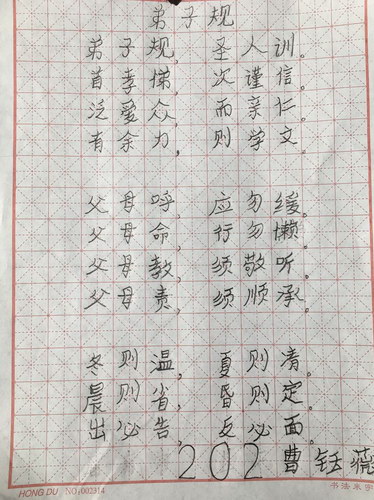 弟子规
弟子规,圣人训。
首孝悌,次谨信。
泛爱众,而亲仁。
有余力,则学文。
父母呼,应勿缓。
父母命,行勿懒。
父母教,须敬听。
父母责,须顺承。
冬则温,夏则清。
晨则省,昏则定。
出必告,反必面。
202 曹钰薇
HONG DU NO:002314